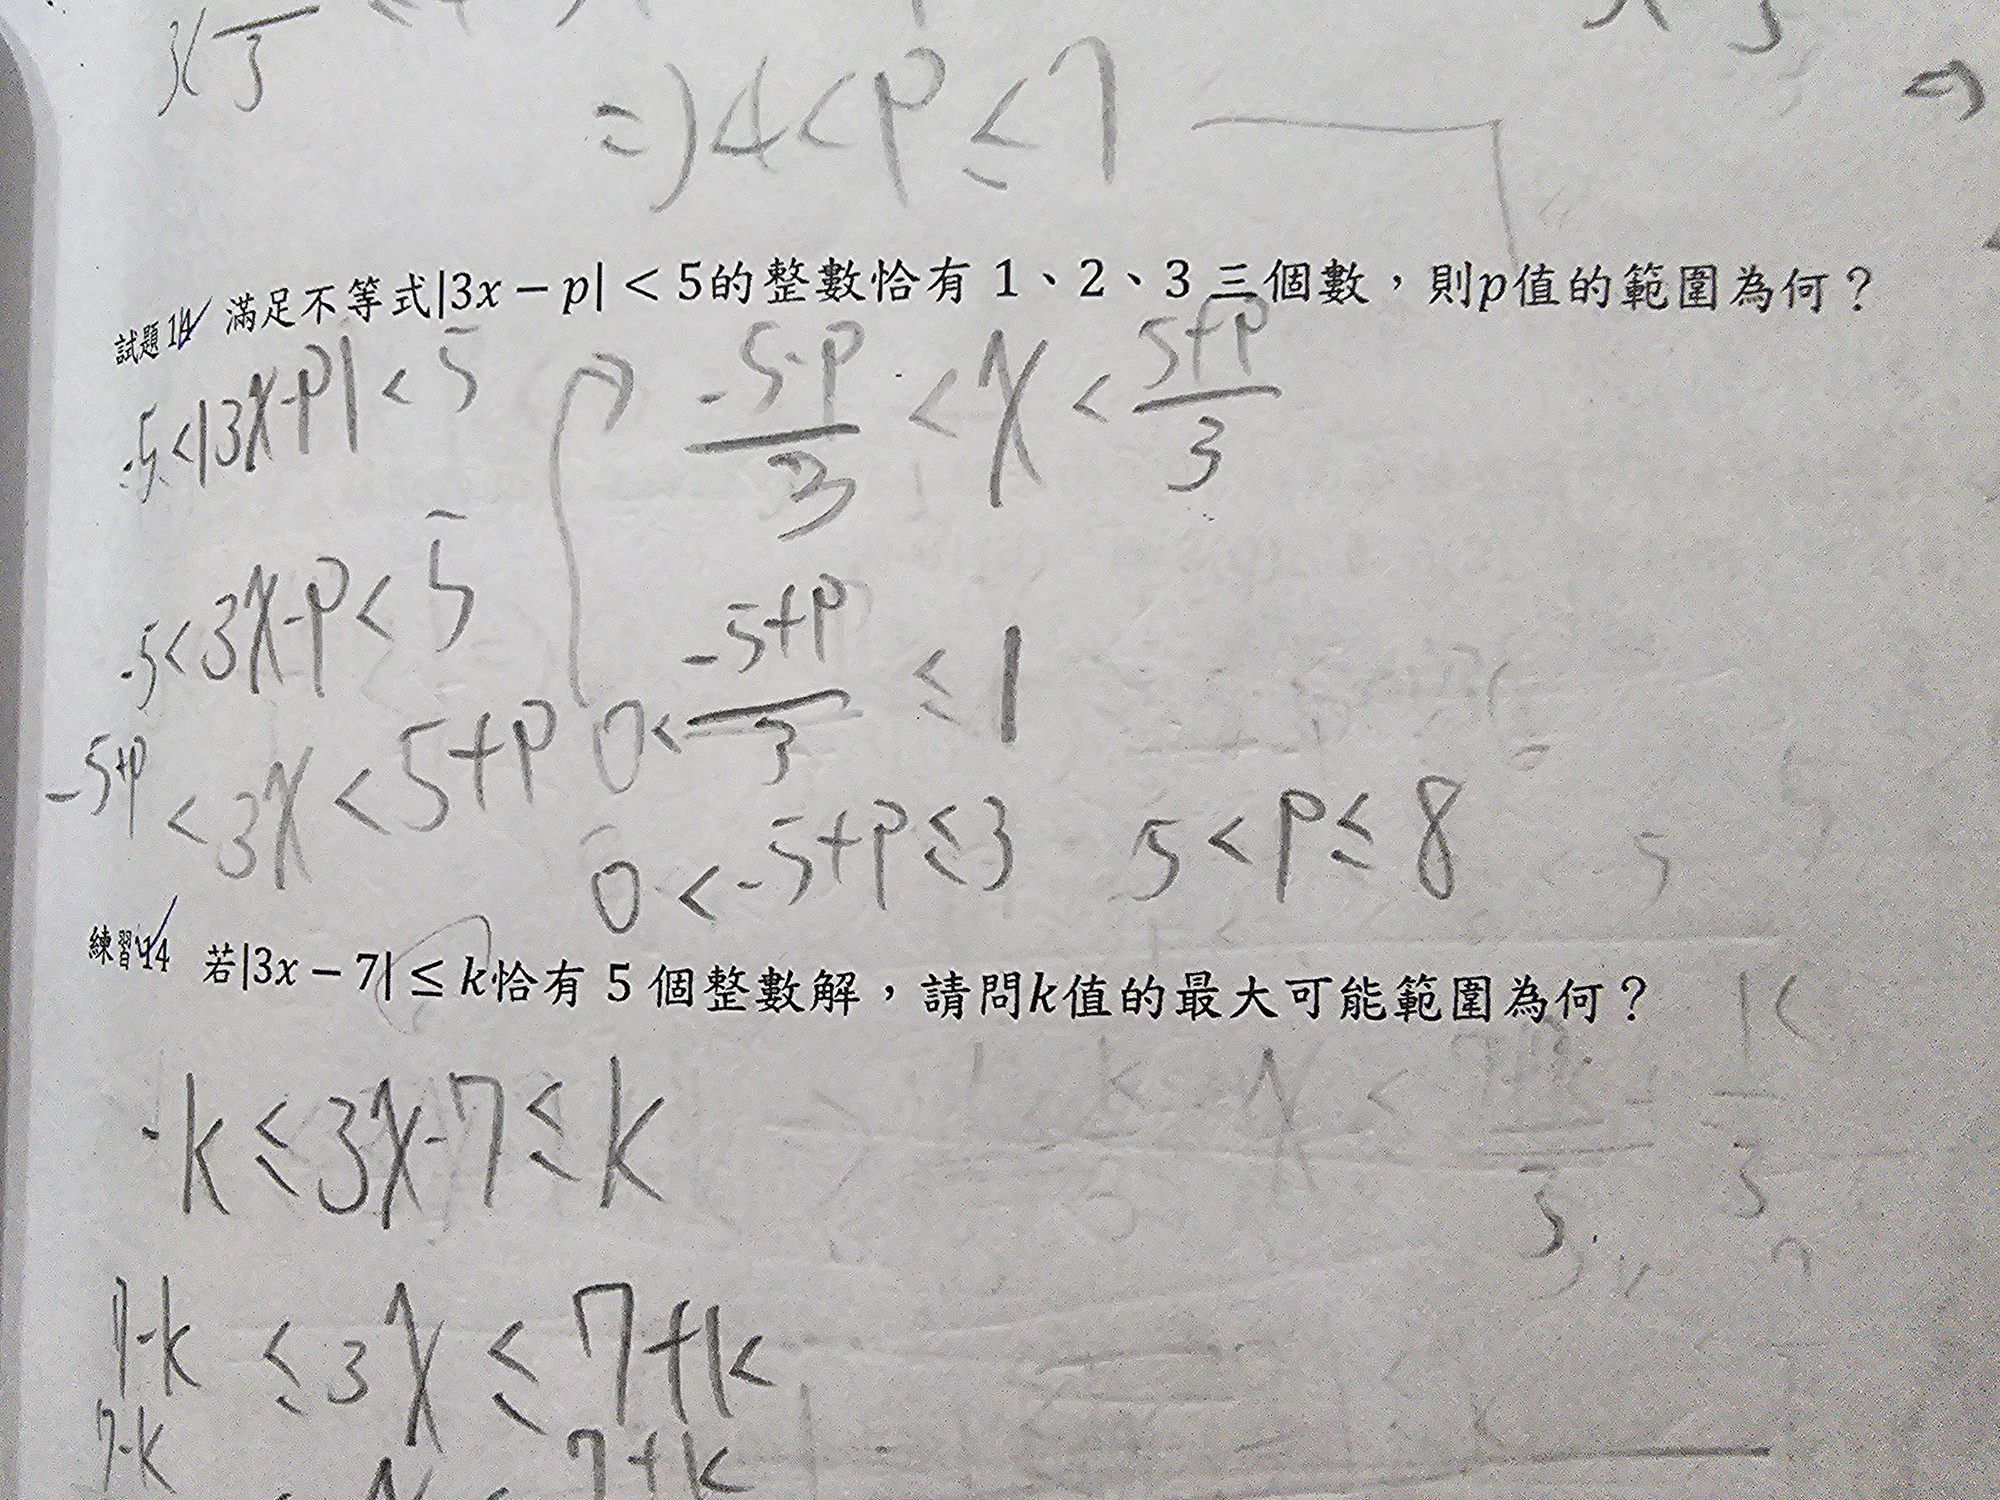 => 4 < p ≤ 7
試題14 滿足不等式|3x − p| < 5的整數恰有 1、2、3 三個數，則p值的範圍為何？
-5 < |3x-p| < 5
(-5-p)/3 < x < (5+p)/3
-5 < 3x-p < 5
0 < (-5+p)/3 ≤ 1
-5+p < 3x < 5+p
0 < -5+p ≤ 3
5 < p ≤ 8
練習14 若|3x − 7| ≤ k恰有 5 個整數解，請問k值的最大可能範圍為何？
-k ≤ 3x-7 ≤ k
7-k ≤ 3x ≤ 7+k
7-k
7+k